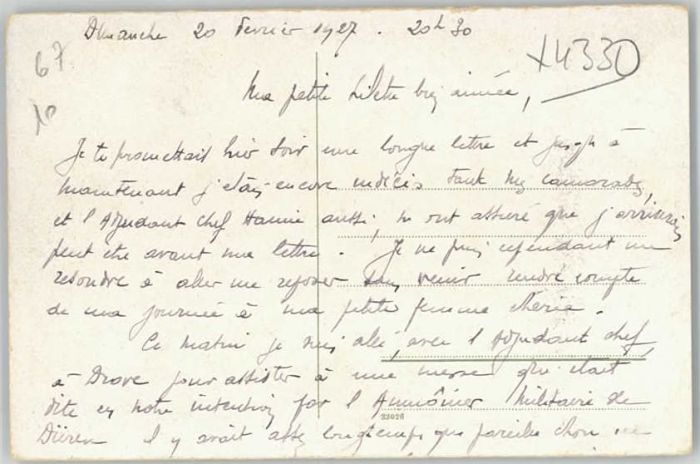 Dimanche 20 février 1927. 20h30
67
10
X4330
Ma petite Lilette bien aimée,
Je te promettais hier soir une longue lettre et jusqu'à
maintenant j'étais encore indécis tant mes camarades,
et l'Adjudant chef aussi, m'ont assuré que j'arriverais
peut être avant ma lettre. Je ne puis cependant me
résoudre à aller me reposer sans venir rendre compte
de ma journée à ma petite femme chérie.
Ce matin je suis allé, avec l'Adjudant chef,
à Drove pour assister à une messe qui était
dite en notre intention par l'Aumônier Militaire de
22026
Düren il y avait assez longtemps que pareille chose ne